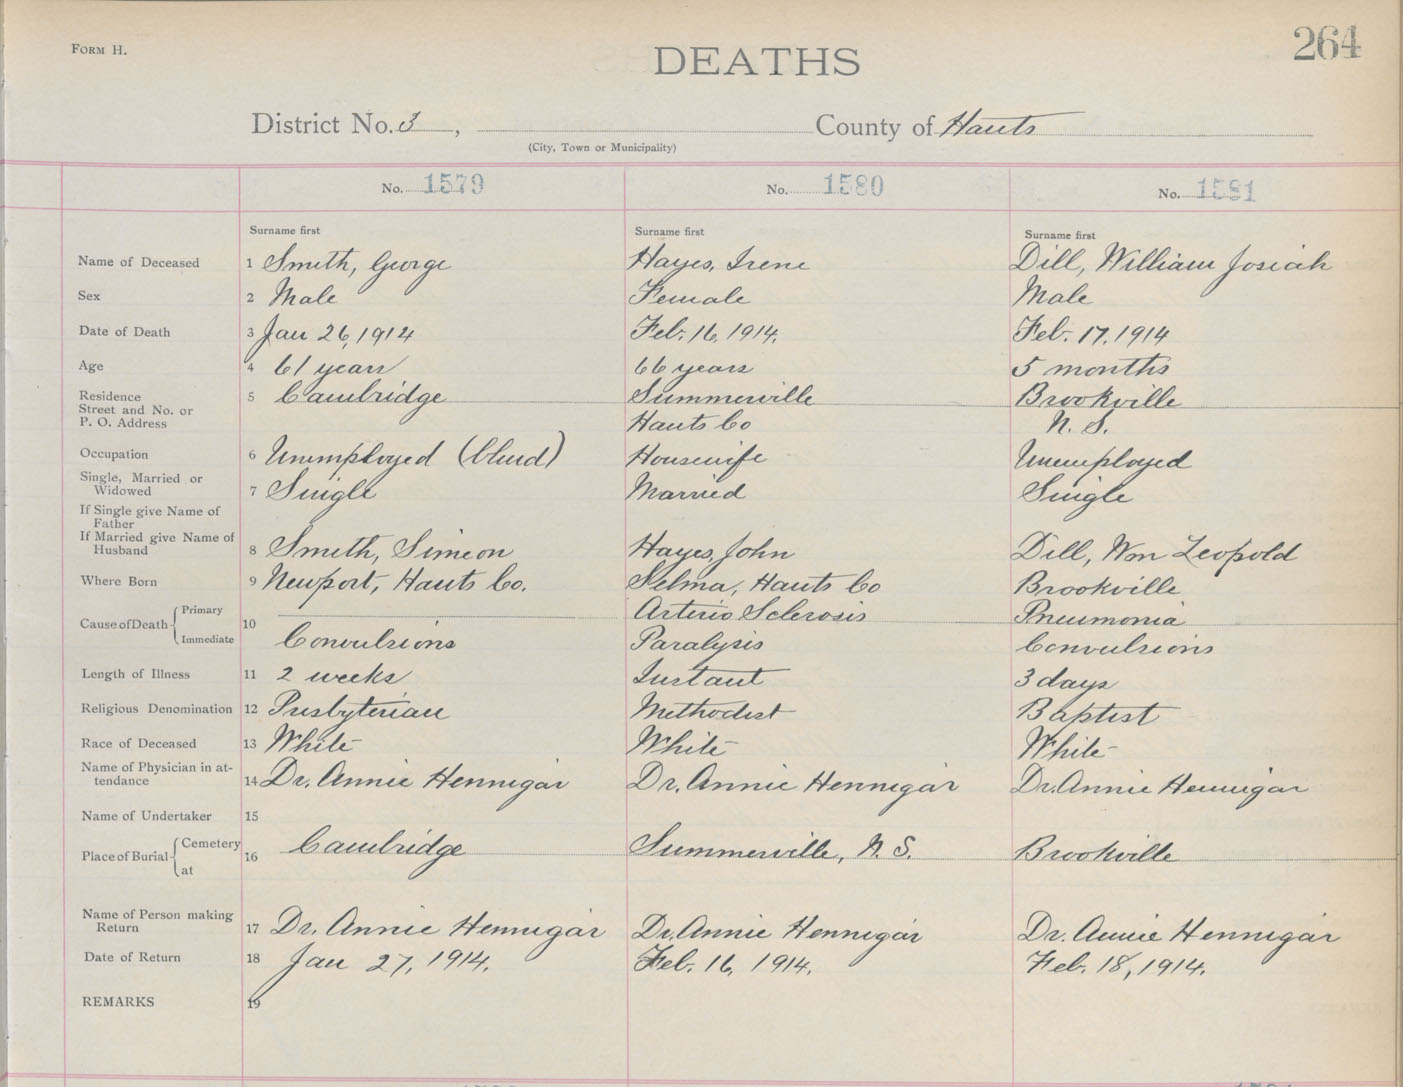 FORM H.
264
DEATHS
District No. 3, County of Hants
(City, Town or Municipality)
No. 1579 No. 1580 No. 1581
Surname first Surname first Surname first
Name of Deceased 1 Smith, George Hayes, Irene Dill, William Josiah
Sex 2 Male Female Male
Date of Death 3 Jan 26, 1914 Feb. 16, 1914. Feb. 17, 1914
Age 4 61 years 66 years 5 months
Residence 5 Cambridge Summerville Brookville
Street and No. or
P. O. Address Hants Co N. S.
Occupation 6 Unemployed (blind) Housewife Unemployed
Single, Married or
Widowed 7 Single Married Single
If Single give Name of
Father
If Married give Name of
Husband 8 Smith, Simeon Hayes, John Dill, Wm Leopold
Where Born 9 Newport, Hants Co. Selma, Hants Co Brookville
Cause of Death Primary 10 Arterio Sclerosis Pneumonia
Immediate Convulsions Paralysis Convulsions
Length of Illness 11 2 weeks Instant 3 days
Religious Denomination 12 Presbyterian Methodist Baptist
Race of Deceased 13 White White White
Name of Physician in at-
tendance 14 Dr. Annie Hennigar Dr. Annie Hennigar Dr. Annie Hennigar
Name of Undertaker 15
Place of Burial Cemetery 16 Cambridge Summerville, N. S. Brookville
at
Name of Person making
Return 17 Dr. Annie Hennigar Dr. Annie Hennigar Dr. Annie Hennigar
Date of Return 18 Jan 27, 1914. Feb. 16, 1914. Feb. 18, 1914.
REMARKS 19